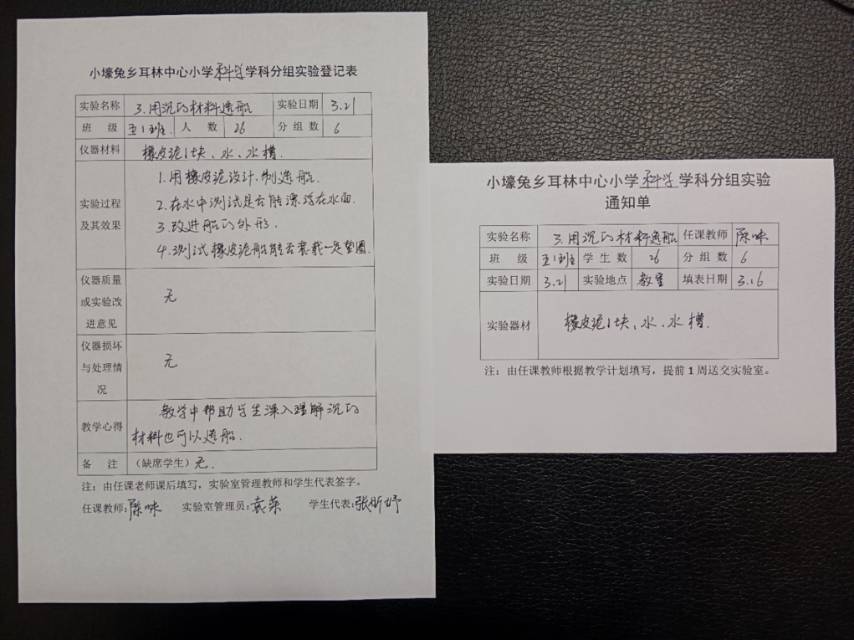 小壕兔乡耳林中心小学科学学科分组实验登记表
实验名称 3.用沉的材料造船 实验日期 3.21
班 级 五1班 人 数 26 分 组 数 6
仪器材料 橡皮泥1块、水、水槽.
实验过程及其效果
1.用橡皮泥设计、制造船.
2.在水中测试是否能漂浮在水面.
3.改进船的外形.
4.测试橡皮泥船能否装载一定重量.
仪器质量或实验改进意见 无
仪器损坏与处理情况 无
教学心得 教学中帮助学生深入理解沉的
材料也可以造船.
备 注 (缺席学生)无.
注：由任课老师课后填写，实验室管理教师和学生代表签字。
任课教师: 实验室管理员: 学生代表:
小壕兔乡耳林中心小学科学学科分组实验
通知单
实验名称 3.用沉的材料造船 任课教师
班 级 五1班 学 生 数 26 分 组 数 6
实验日期 3.21 实验地点 教室 填表日期 3.16
实验器材 橡皮泥1块、水、水槽.
注：由任课教师根据教学计划填写，提前1周送交实验室。